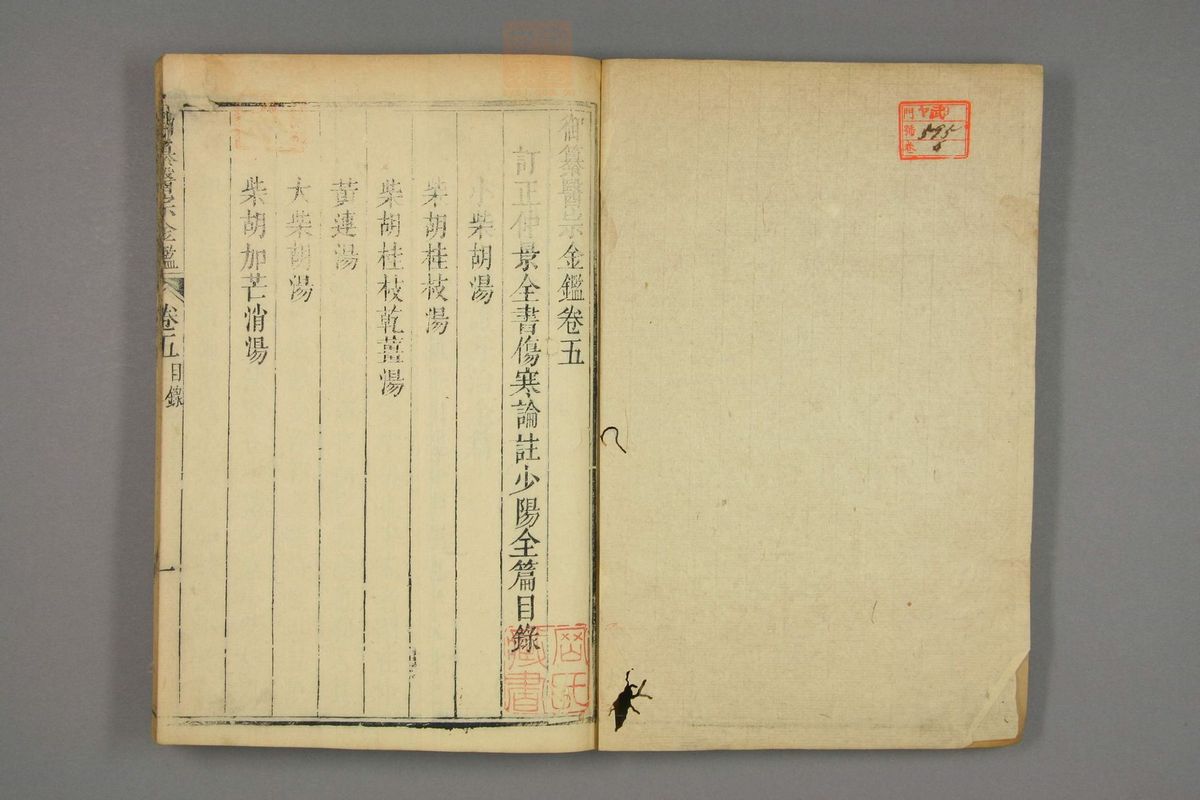 御纂醫宗金鑑卷五
訂正仲景全書傷寒論註少陽全篇目錄
小柴胡湯
柴胡桂枝湯
柴胡桂枝乾薑湯
黃連湯
大柴胡湯
柴胡加芒消湯
御纂醫宗金鑑
卷五
目錄
一
門
號
卷
595
6
藏書